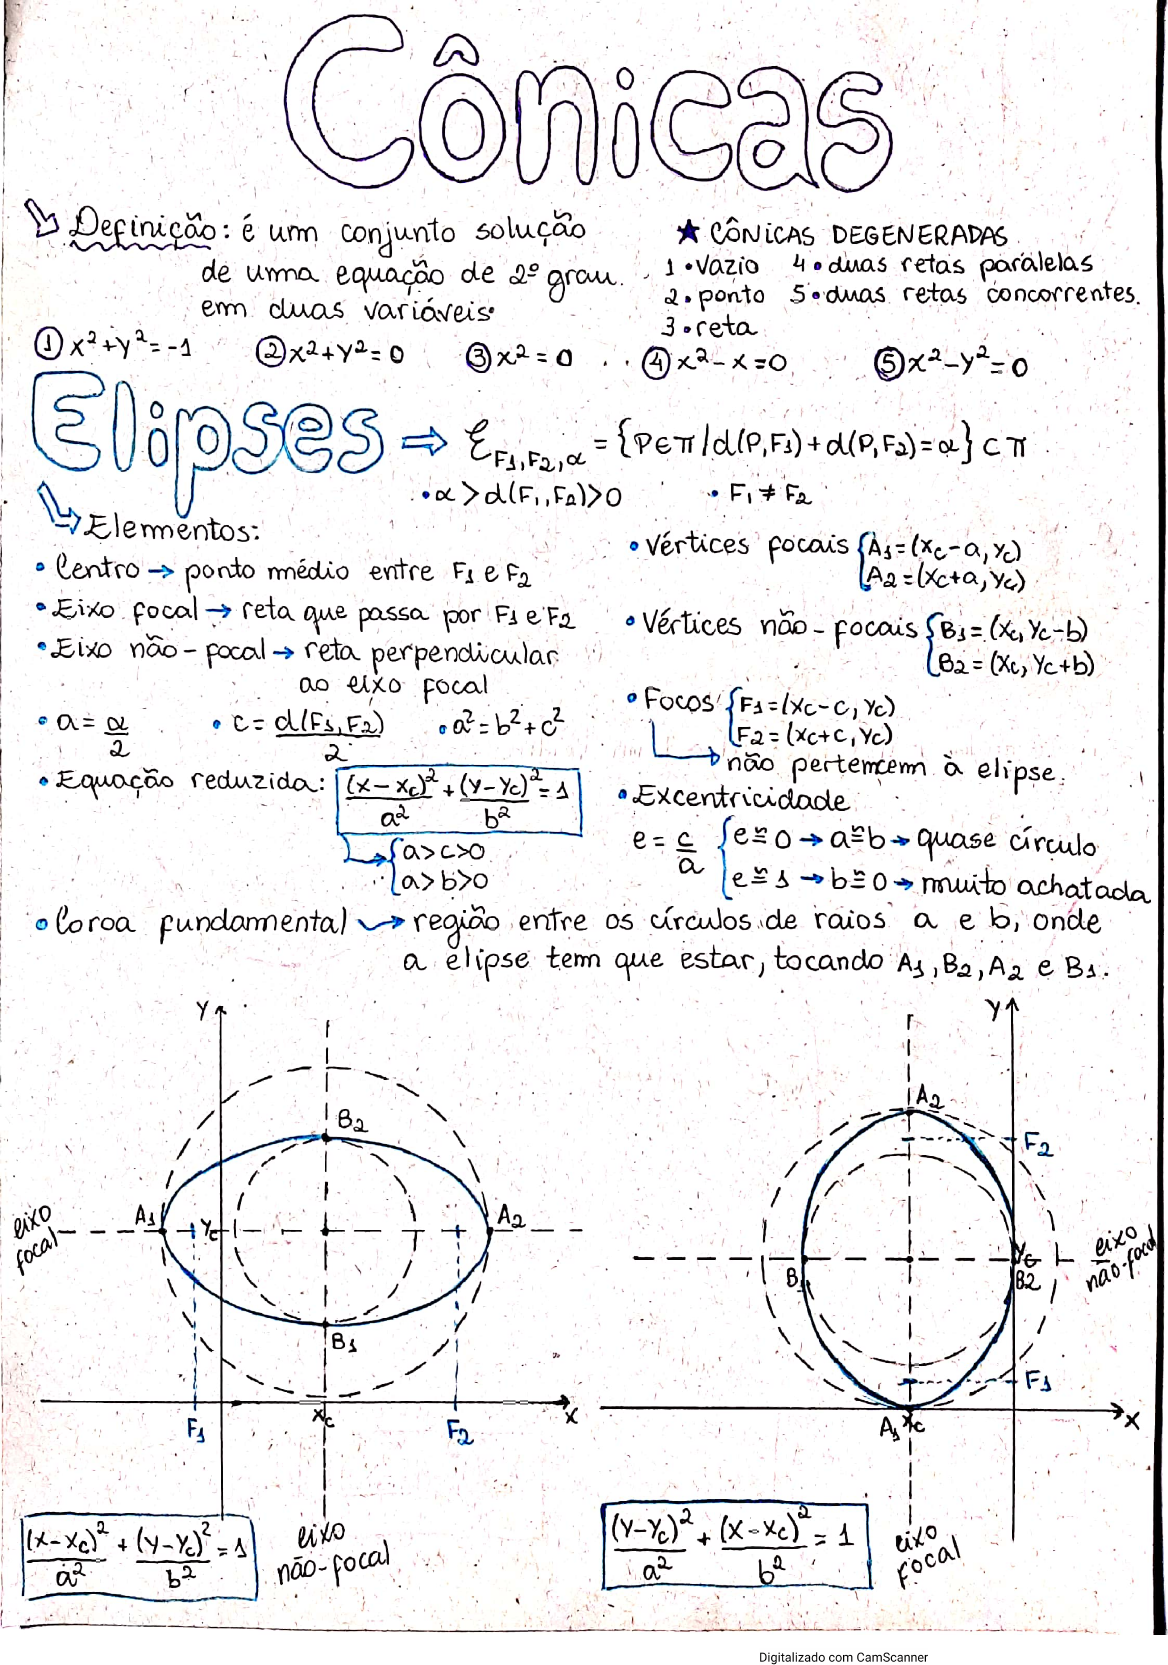 Cônicas
Definição: é um conjunto solução
de uma equação de 2º grau
em duas variáveis
★ CÔNICAS DEGENERADAS
1•Vazio 4•duas retas paralelas
2•ponto 5•duas retas concorrentes.
3•reta
① x²+y²=-1 ② x²+y²=0 ③ x²=0 ④ x²-x=0 ⑤ x²-y²=0
Elipses ⇒ ℰ_F1,F2,α = {P∈π/d(P,F1)+d(P,F2)=α} ⊂ π
•α>d(F1,F2)>0 • F1≠F2
Elementos:
• Centro → ponto médio entre F1 e F2
• Eixo focal → reta que passa por F1 e F2
• Eixo não-focal → reta perpendicular
ao eixo focal
• a=α/2 • c=d(F1,F2)/2 • a²=b²+c²
• Equação reduzida: (x-xc)²/a² + (y-yc)²/b² = 1
{a>c>0
{a>b>0
• Vértices focais {A1=(xc-a, yc)
A2=(xc+a, yc)
• Vértices não-focais {B1=(xc, yc-b)
B2=(xc, yc+b)
• Focos {F1=(xc-c, yc)
F2=(xc+c, yc)
não pertencem à elipse.
• Excentricidade
e=c/a {e≅0 → a≅b → quase círculo
e≅1 → b≅0 → muito achatada
• Coroa fundamental → região entre os círculos de raios a e b, onde
a elipse tem que estar, tocando A1, B2, A2 e B1.
Y
B2
A1
Yc
A2
eixo
focal
B1
F1
xc
F2
X
(x-xc)²/a² + (y-yc)²/b² = 1
eixo
não-focal
Y
A2
F2
eixo
não-focal
B1
Yc
B2
F1
A1
xc
X
(y-yc)²/a² + (x-xc)²/b² = 1
eixo
focal
Digitalizado com CamScanner